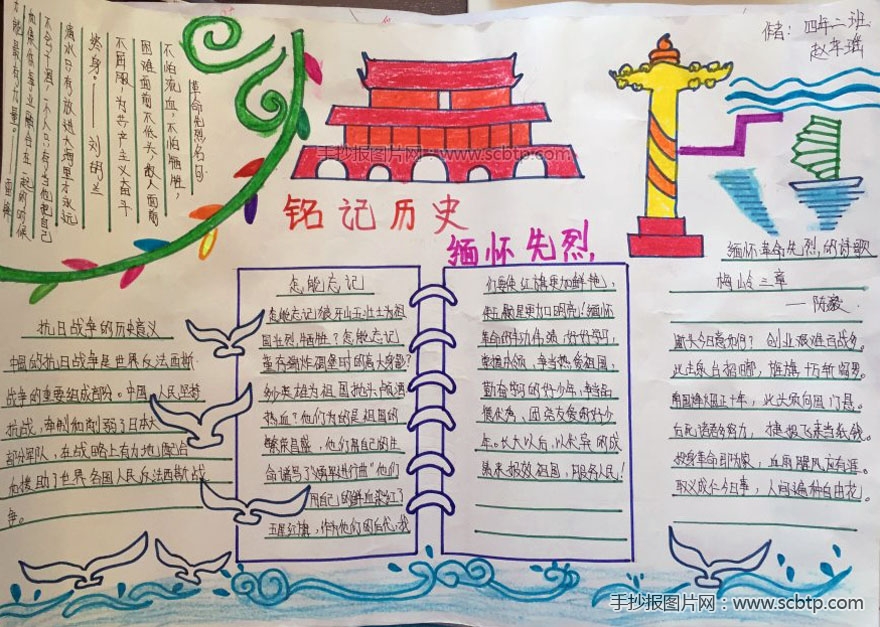 作者：四年二班
赵车瑶
革命先烈名句
不怕流血，不怕牺牲，
困难面前不低头，敌人面前
不屈服，为共产主义奋斗
终身。——刘胡兰
滴水只有放进大海里才永远
不会干涸，一个人只有当他把自己
和集体事业融合在一起的时候
才能最有力量。——雷锋
手抄报图片网：www.scbtp.com
铭记历史
缅怀先烈,
抗日战争的历史意义
中国的抗日战争是世界反法西斯
战争的重要组成部分。中国人民坚持
抗战，牵制和削弱了日本大
部分军队，在战略上有力地配合
和援助了世界各国人民反法西斯战
争。
怎能忘记
怎能忘记狼牙山五壮士为祖
国壮烈牺牲？怎能忘记
董存瑞炸碉堡时的高大身躯？
多少英雄为祖国抛头颅洒
热血？他们为的是祖国的
繁荣昌盛，他们用自己的生
命谱写了《义勇军进行曲》他们
用自己的鲜血染红了
五星红旗，作为他们的后代，我
们要使红旗更加鲜艳，
使五颗星更加明亮！缅怀
革命的丰功伟绩，好好学习，
掌握本领，争当热爱祖国，
勤奋学习的好少年，争当品
德优秀，团结友爱的好少
年。长大以后，以优异的成
绩来报效祖国，服务人民！
缅怀革命先烈,的诗歌
梅岭三章
—陈毅
断头今日意如何？创业艰难百战多。
此去泉台招旧部，旌旗十万斩阎罗。
南国烽烟正十年，此头须向国门悬。
后死诸君多努力，捷报飞来当纸钱。
投身革命即为家，血雨腥风应有涯。
取义成仁今日事，人间遍种自由花。
手抄报图片网：www.scbtp.com